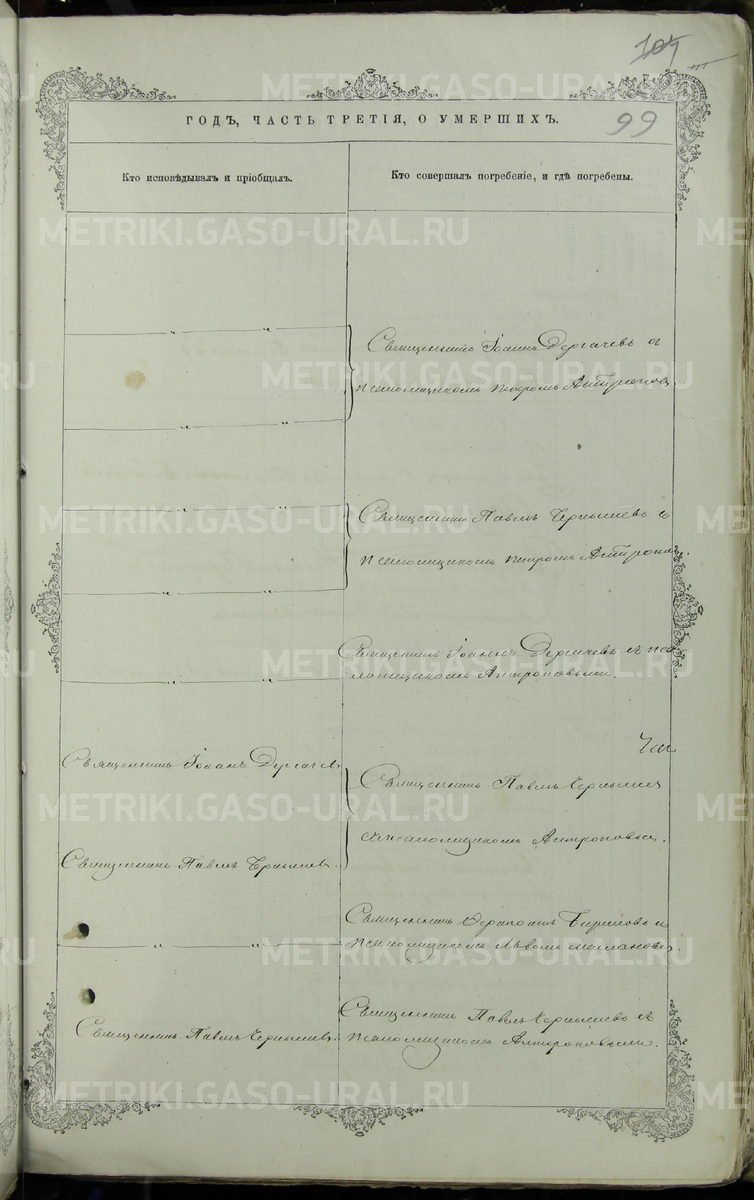 99
ГОДЪ, ЧАСТЬ ТРЕТІЯ, О УМЕРШИХЪ.
Кто исповѣдывалъ и пріобщалъ.
Кто совершалъ погребеніе, и гдѣ погребены.
Священникъ Іоаннъ Дергачевъ съ
псаломщикомъ Петромъ Антропов
Священникъ Павелъ Чернышевъ съ
псаломщикомъ Петромъ Антропов
Священникъ Іоаннъ Дергачевъ съ пса
ломщикомъ Антроповымъ.
Священникъ Іоаннъ Дергачев
Священникъ Павелъ Чернышев
съ псаломщикомъ Антроповым.
Священникъ Павелъ Чернышев.
Священникъ Бирюковъ с
псаломщикомъ Львомъ
Священникъ Павелъ Чернышев.
Священникъ Павелъ Чернышевъ съ
псаломщикомъ Антроповымъ.
METRIKI.GASO-URAL.RU